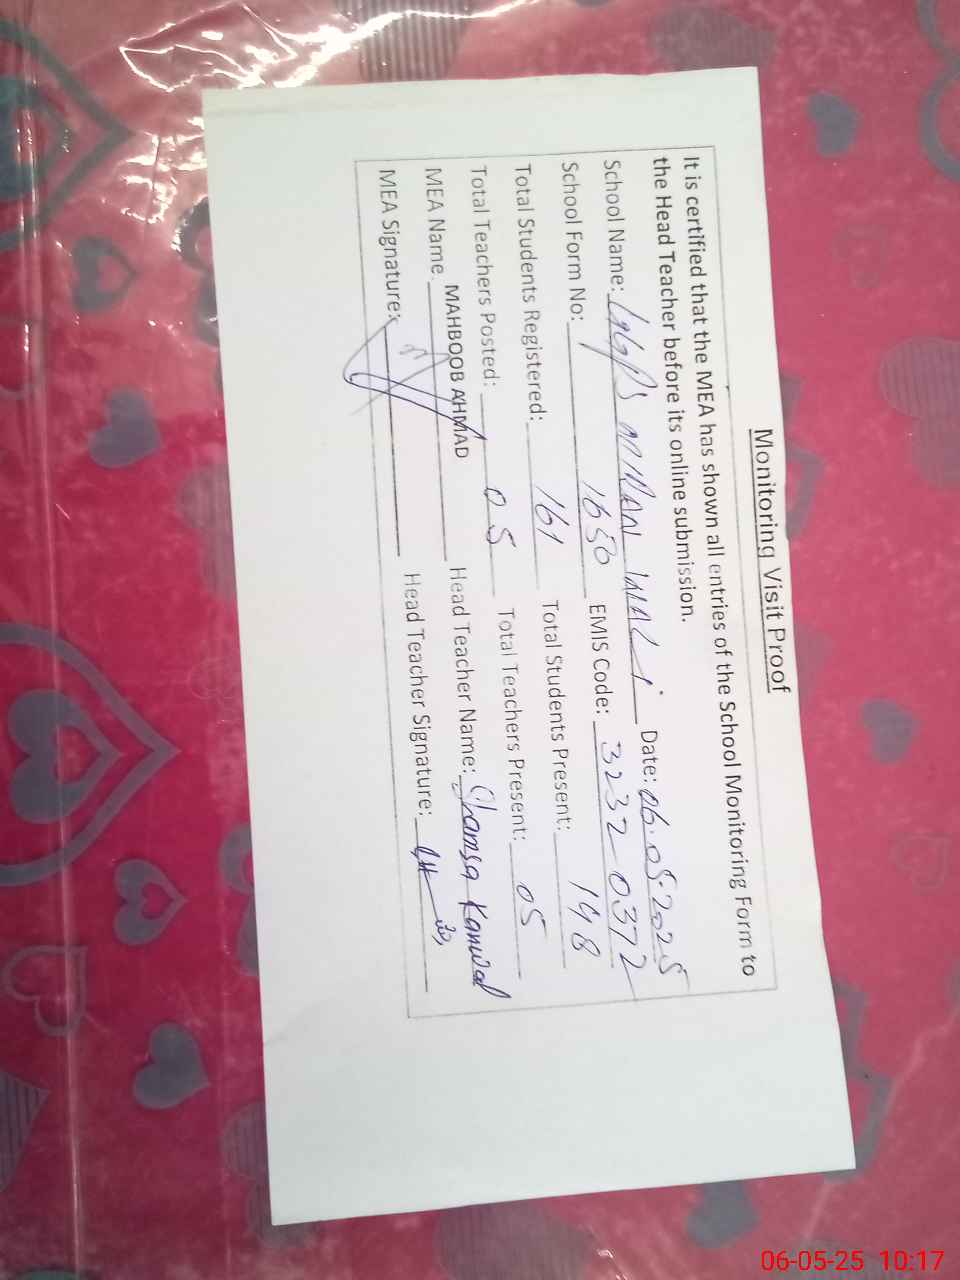 Monitoring Visit Proof
It is certified that the MEA has shown all entries of the School Monitoring Form to
the Head Teacher before its online submission.
School Name: WALI Date: 06.05.2025
School Form No: 1650 EMIS Code: 3232 0372
Total Students Registered: 161 Total Students Present: 148
Total Teachers Posted: 05 Total Teachers Present: 05
MEA Name. MAHBOOB AHMAD Head Teacher Name: Shamsa Kanwal
MEA Signature: Head Teacher Signature:
06-05-25 10:17